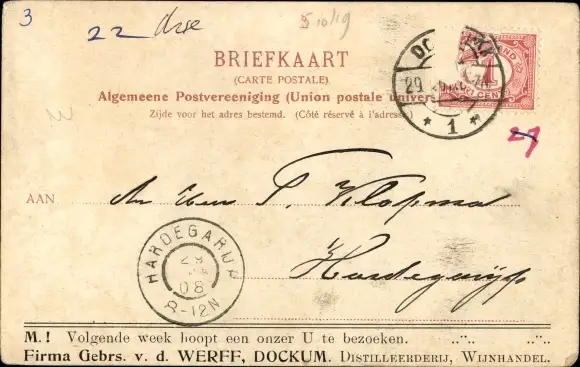 3
22
BRIEFKAART
(CARTE POSTALE)
Algemeene Postvereeniging (Union postale univers
Zijde voor het adres bestemd. (Côté réservé à l'adresse)
29
1
AAN
P. Klopma
Hardegarijp
HARDEGARIJP
29
08
8-12N
M.! Volgende week hoopt een onzer U te bezoeken.
Firma Gebrs. v. d. WERFF, DOCKUM. DISTILLEERDERIJ, WIJNHANDEL.